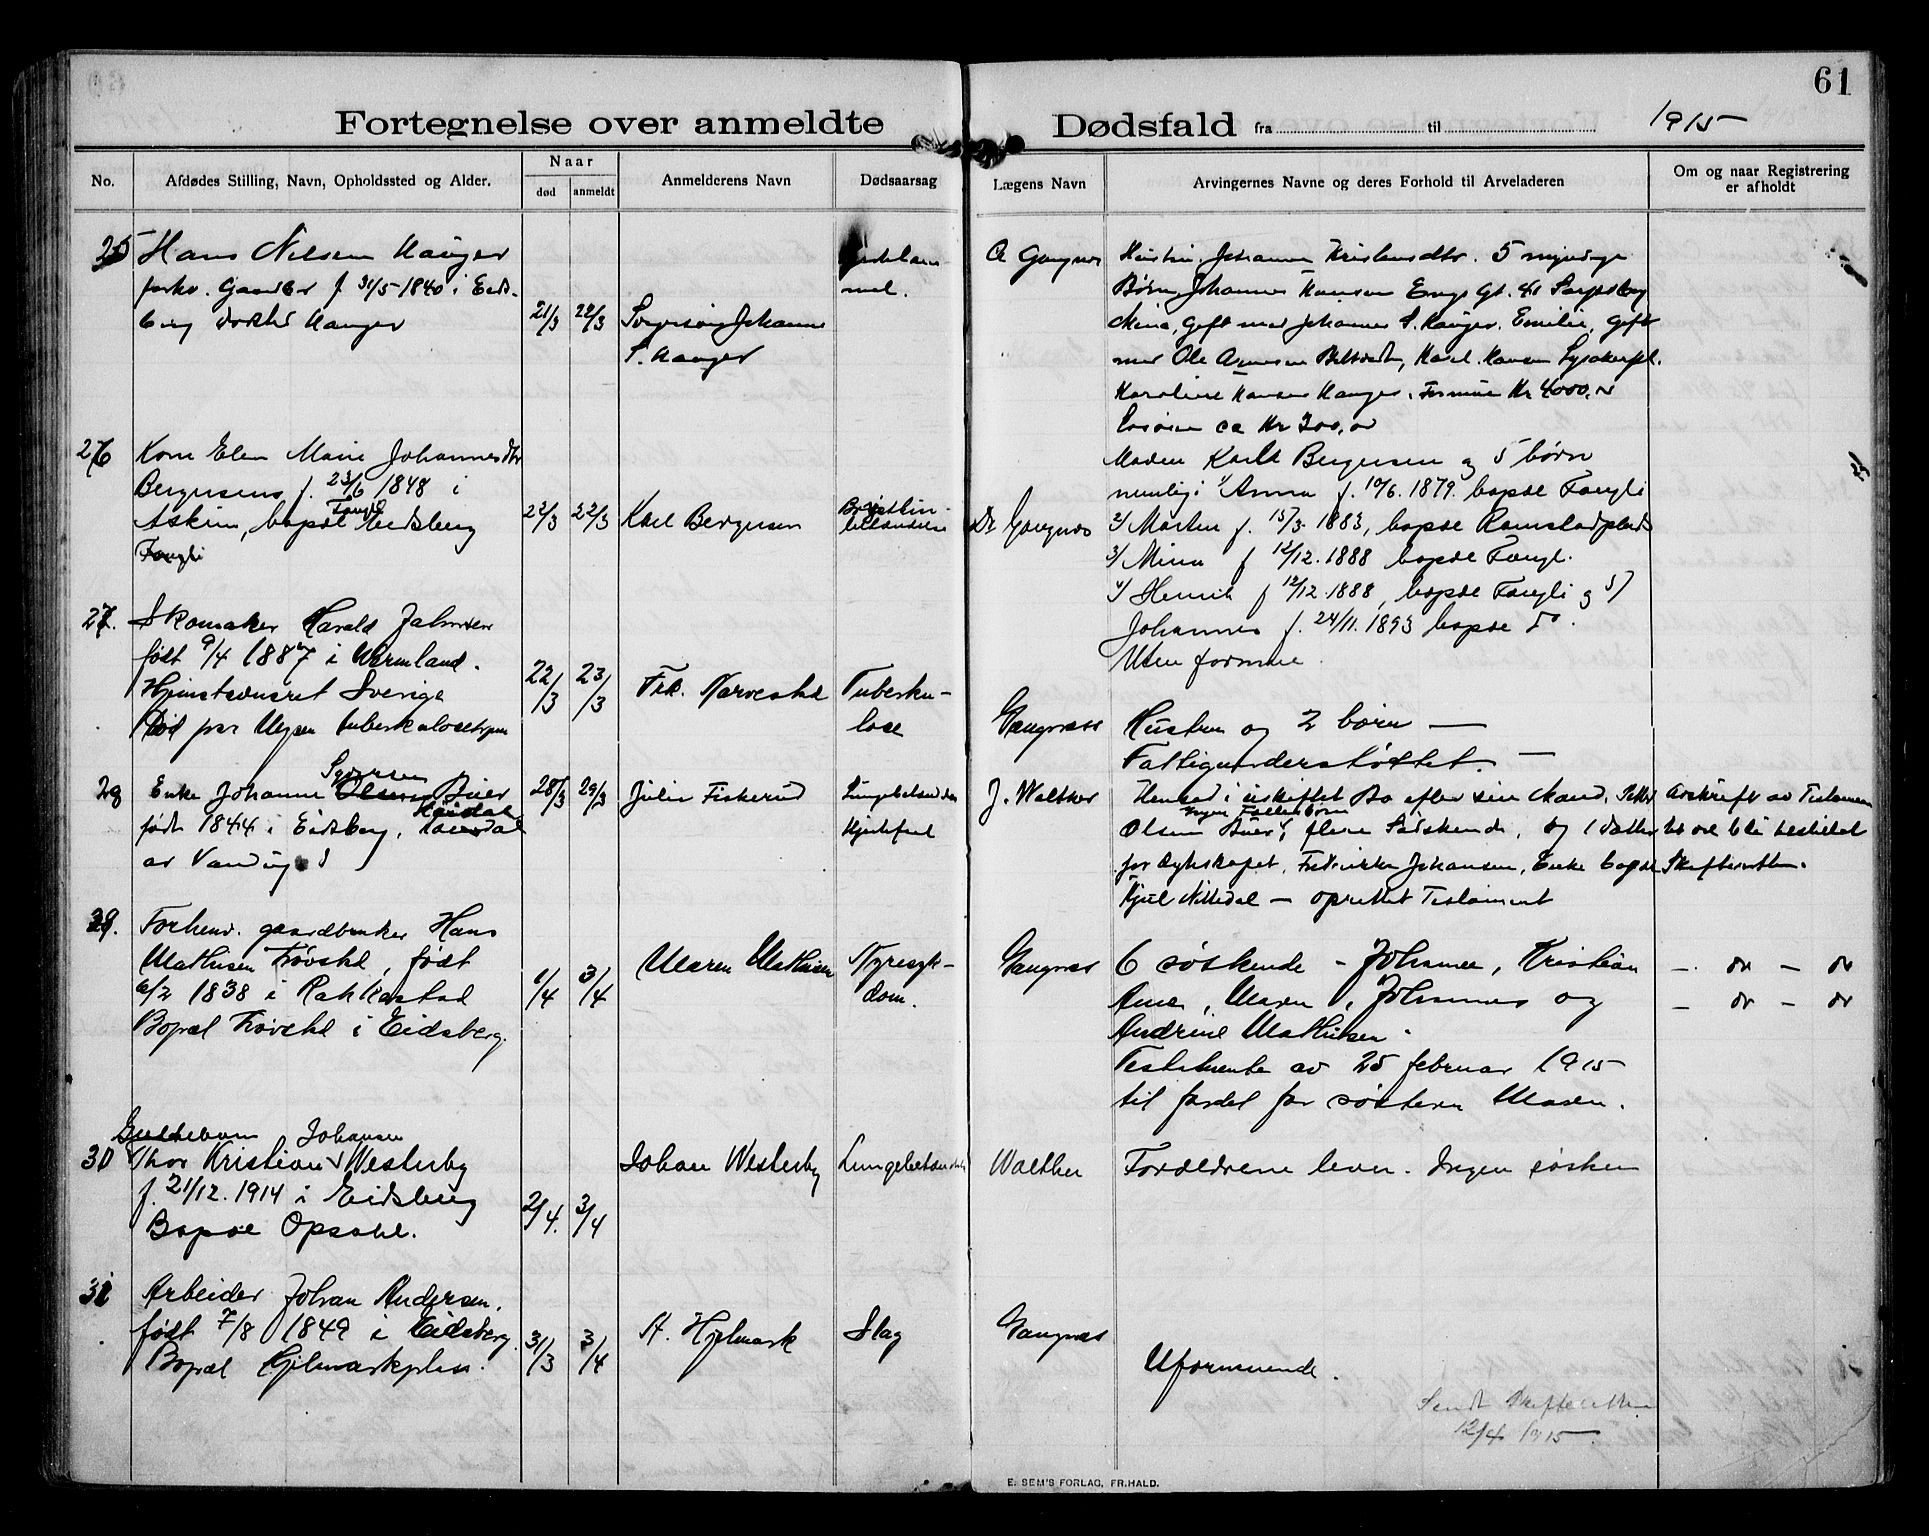 61
Fortegnelse over anmeldte Dødsfald fra til 1915
No.
Afdødes Stilling, Navn, Opholdssted og Alder.
Naar
død
anmeldt
Anmelderens Navn
Dødsaarsag
Lægens Navn
Arvingernes Navne og deres Forhold til Arveladeren
Om og naar Registrering
er afholdt
25
Hans Nilsen Hauger
forhv. Gaardbr f 31/5 1840 i Eids-
berg
Hauger
21/3
22/3
Johannes
S. Hauger
Gangnæs
Hustru Johanne Kristensdtr. 5 myndige
Børn, Johannes Hansen Enge Gt. 41 Sarpsborg
Mina, gift med Johannes S. Hauger. Emilie, gift
med Ole, Karl Hansen
Karoline Hansen Hauger. Formue Kr 4000,
Løsøre ca Kr 300,
26
Kone Elen Marie Johannesdtr
Bergersens f. 23/6 1848 i
Askim, bopæl Fangli Eidsberg
Fangli
22/3
22/3
Karl Bergersen
Dr Gangnæs
Manden Karl Bergersen og 5 børn
nemlig: 1/ Anna f. 10/6. 1879. bopæl Fangli
2/ Morten f. 15/3 1883, bopæl Ramstadplads
3/ Mina f 12/12. 1888 bopæl Fangli
4/ Henrik f 12/12. 1888, bopæl Fangli og 5/
Johannes f. 24/11. 1893 bopæl do.
Uten formue.
27.
Skomaker Harald Jahnsen
født 9/4 1887 i Wermland.
Hjemstavnsret Sverige
Død paa Mysen tuberkulosehjem
22/3
23/3
Frk. Narvestad
Tuberku-
lose
Gangnæss
Hustru og 2 børn —
Fattigunderstøttet. —
28
Enke Johanne Syversen Olsen Buer
født 1844 i Eidsberg,
28/3
29/3
Julie Fiskerud
Hjertefeil
J. Walther
Hensad i uskiftet Bo efter sin Mand, Petter
Olsen Buer, Ingen Fællesbørn flere Sødskende, og 1 datter
før Egteskapet, Fredrikke Johansen, Enke bopæl
Kjul Nittedal — oprettet Testament
Avskrift av Testamen
tet vil bli tilstillet
Skifteretten.
29.
Forhenv. gaardbruker Hans
Mathisen Trøvstad, født
6/2 1838 i Rakkestad
Bopæl Trøvstad i Eidsberg.
1/4
3/4
Maren Mathisen
Nyresyk-
dom.
Gangnæss
6 søskende - Johanne, Kristian
Anne, Maren, Johannes og
Andrine Mathisen.
Testamente av 25 februar 1915
til fordel for søsteren Maren.
30
Guttebarn
Thor Kristian Johansen Westerby
f. 21/12. 1914 i Eidsberg
Bopæl Opsahl.
2/4.
3/4
Johan Westerby
Lungebetændelse
Walther
Forældrene lever. Ingen søsken
31
Arbeider Johan Andersen.
født 7/8 1849 i Eidsberg.
Bopæl Hjelmarkplsn.
31/3
3/4
A. Hjelmark
Slag
Gangnæss
Uformuende.
Sendt Skifteretten
12/4 1915
E. SEM'S FORLAG, FR.HALD.